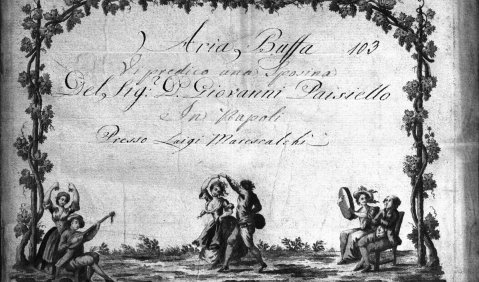 Aria Buffa 103
Vi predico una Sposina
Del Sig.r D. Giovanni Paisiello
In Napoli
Presso Luigi Marescalchi